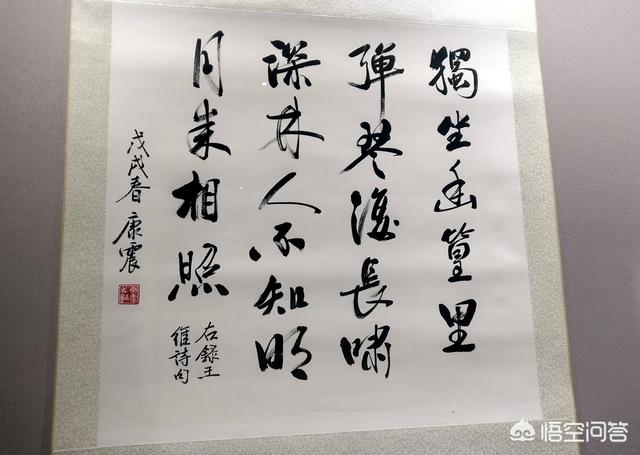 獨坐幽篁里
彈琴復長嘯
深林人不知明
月来相照
右錄王
維詩句
戊戌春 康震
悟空问答